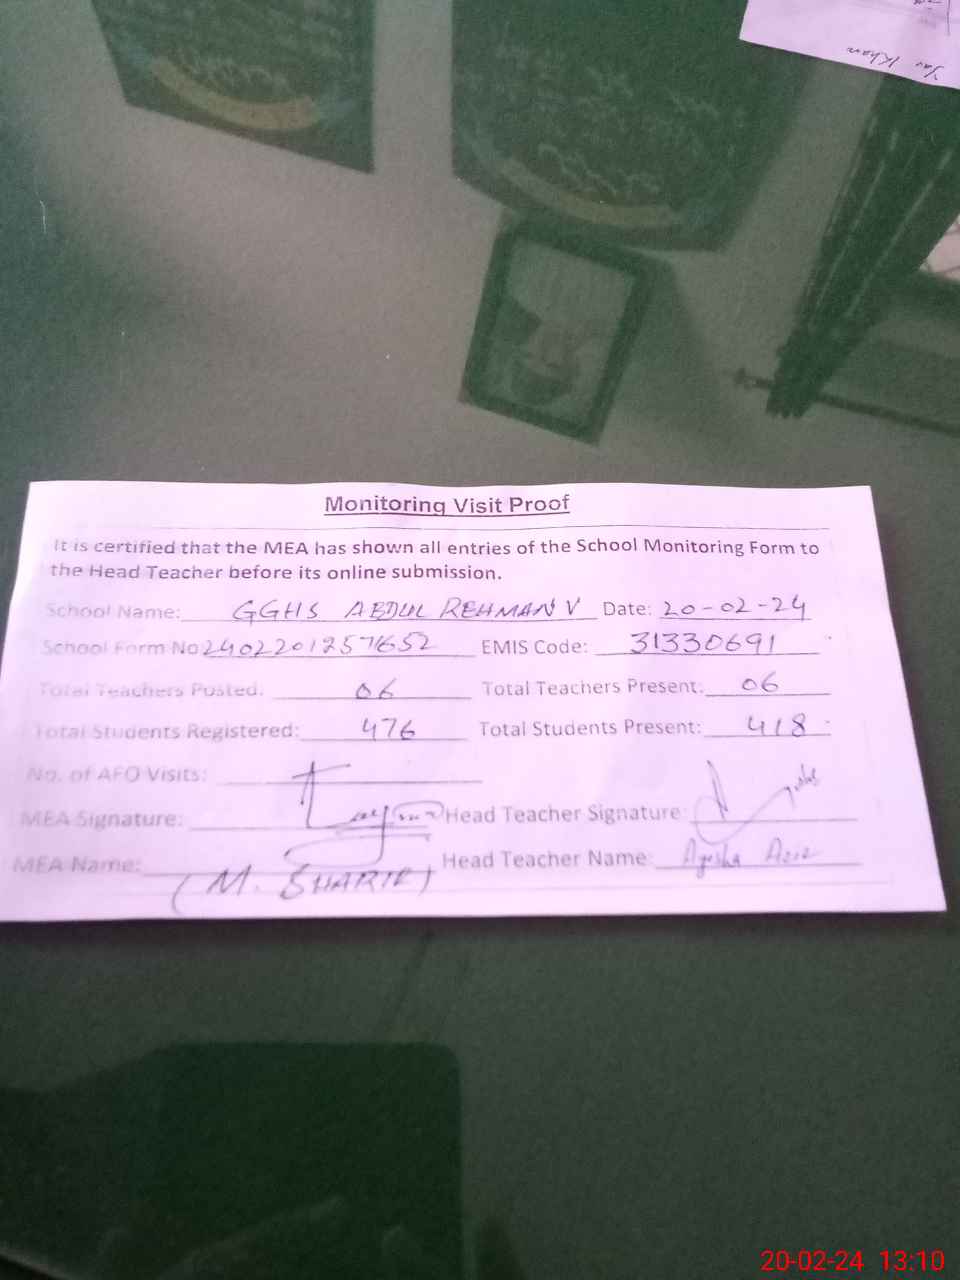 Yar Khan
Monitoring Visit Proof
It is certified that the MEA has shown all entries of the School Monitoring Form to
the Head Teacher before its online submission.
School Name: GGHS ABDUL REHMAN V Date: 20-02-24
School Form No 2402201257652 EMIS Code: 31330691
Total Teachers Posted: 06 Total Teachers Present: 06
Total Students Registered: 476 Total Students Present: 418
No. of AFO Visits:
MEA Signature: Head Teacher Signature:
MEA Name: (M. SHARIF) Head Teacher Name: Ayesha Aziz
20-02-24 13:10